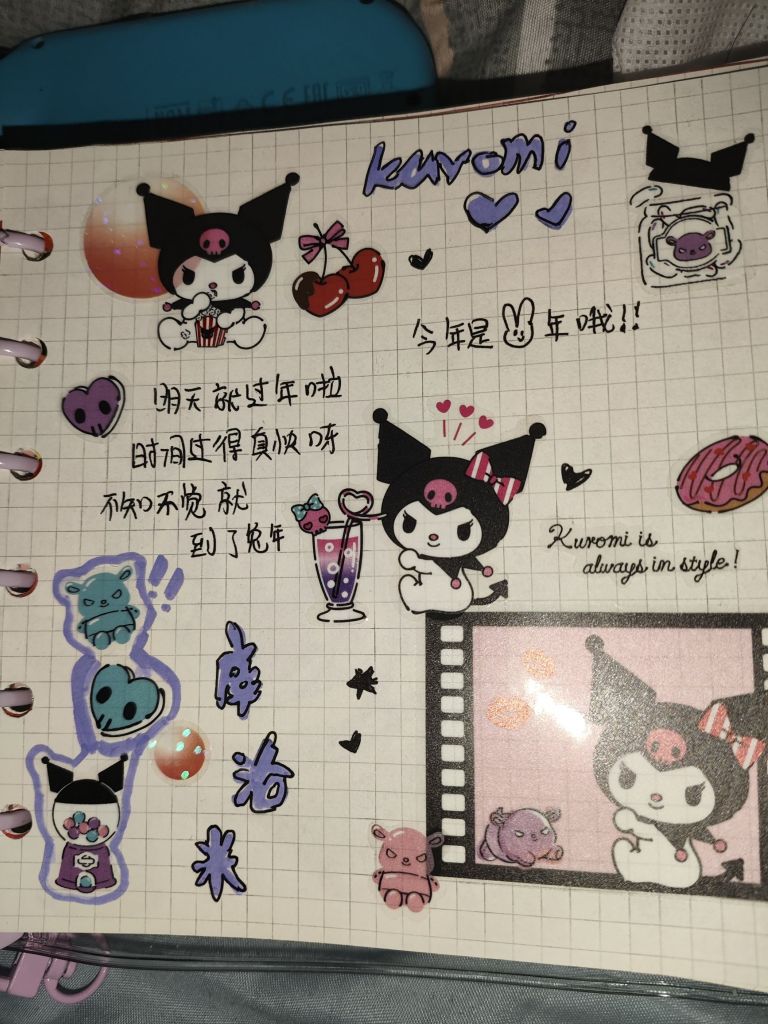 kuromi
今年是年哦!!
明天就过年啦
时间过得真快呀
不知不觉就
到了兔年
Kuromi is
always in style!
!!
库
洛
米